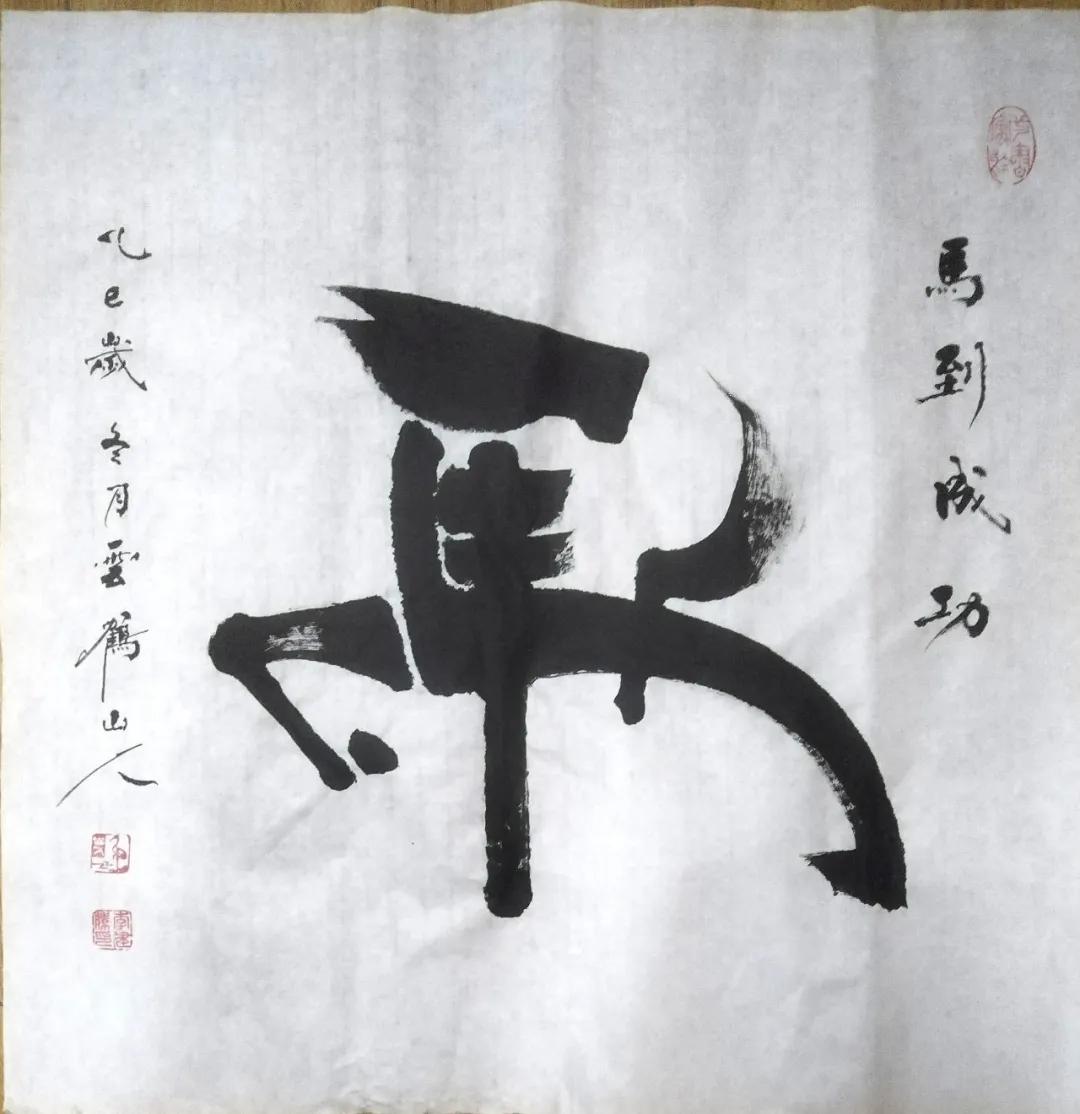 馬到成功
馬
乙巳歲冬月雲鶴山人